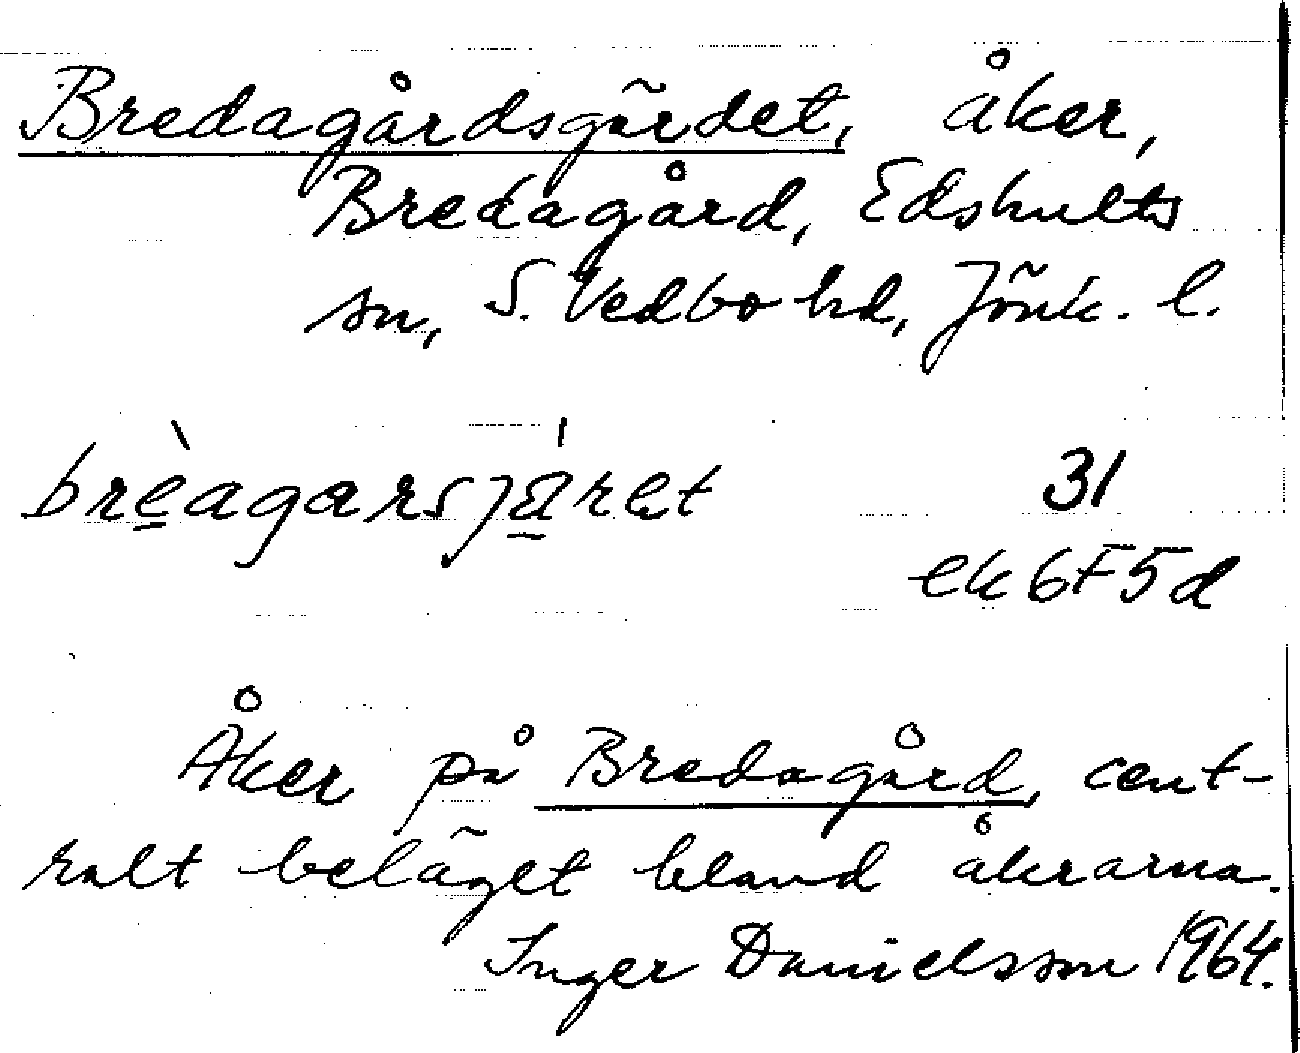 Bredagårdsgärdet, åker,
Bredagård, Edshults
sn, S. Vedbo hd, Jönk. l.
brèagarsjäret
31
ek 6F5d
Åker på Bredagård, cent-
ralt beläget bland åkrarna.
Inger Danielsson 1964.